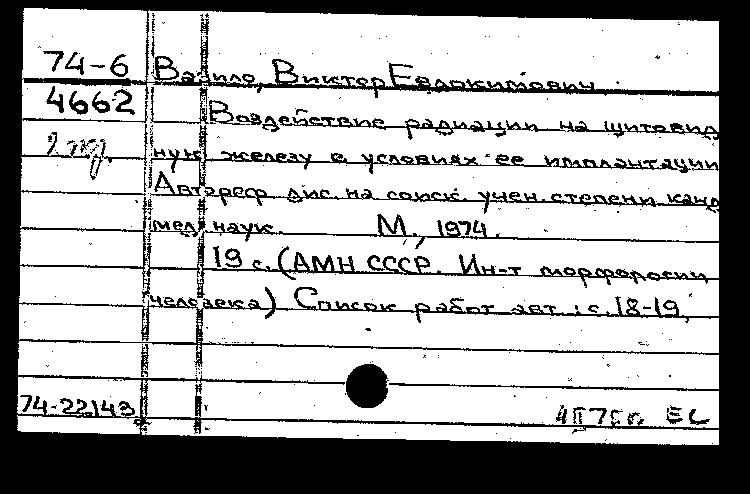 74-6 Вазило, Виктор Евдокимович.
4662 Воздействие радиации на щитовид
2 экз. ную железу в условиях ее имплантации
Автореф. дис. на соиск. учен. степени канд
мед. наук. М., 1974.
19 с. (АМН СССР. Ин-т морфологии
человека) Список работ авт.: с. 18-19.
74-22143
EL